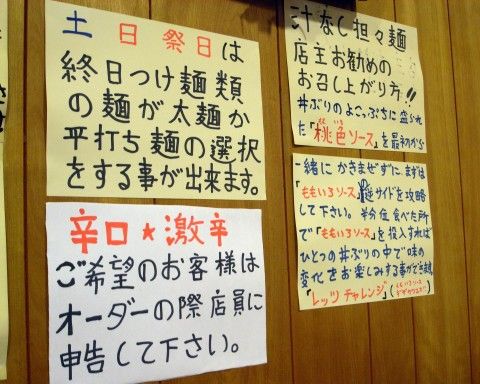 土 日 祭日は
終日つけ麺類
の麺が太麺か
平打ち麺の選択
をする事が出来ます。
辛口★激辛
ご希望のお客様は
オーダーの際店員に
申告して下さい。
汁なし担々麺
店主お勧めの
お召し上がり方!!
丼ぶりのよこっぷちに盛られ
た「桃色ソース」を最初から
一緒にかきまぜずに、まずは
「ももいろソース」逆サイドを攻略
して下さい。半分位食べた所
で「ももいろソース」を投入すれば
ひとつの丼ぶりの中で味の
変化をお楽しみする事ができます
「レッツ チャレンジ」